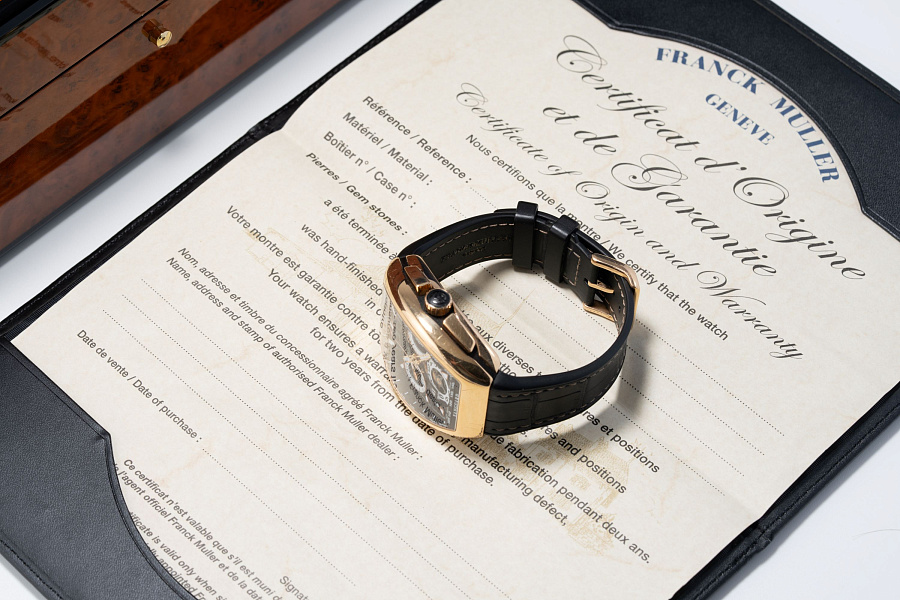 FRANCK MULLER
GENEVE
Certificat d'Origine
et de Garantie
Certificate of Origin and Warranty
Nous certifions que la montre / We certify that the watch
Référence / Reference :
Matériel / Material :
Boîtier n° / Case n° :
Pierres / Gem stones :
a été terminée aux diverses res et positions
was hand-finished res and positions
Votre montre est garantie contre to de fabrication pendant deux ans.
Your watch ensures a warra manufacturing defect,
for two years from the date of purchase.
Nom, adresse et timbre du concessionnaire agréé Franck Muller :
Name, address and stamp of authorised Franck Muller dealer :
Date de vente / Date of purchase :
Ce certificat n'est valable que s'il est muni d
l'agent officiel Franck Muller et de la da
icate is valid only when s
ly appointed Fra
Signat